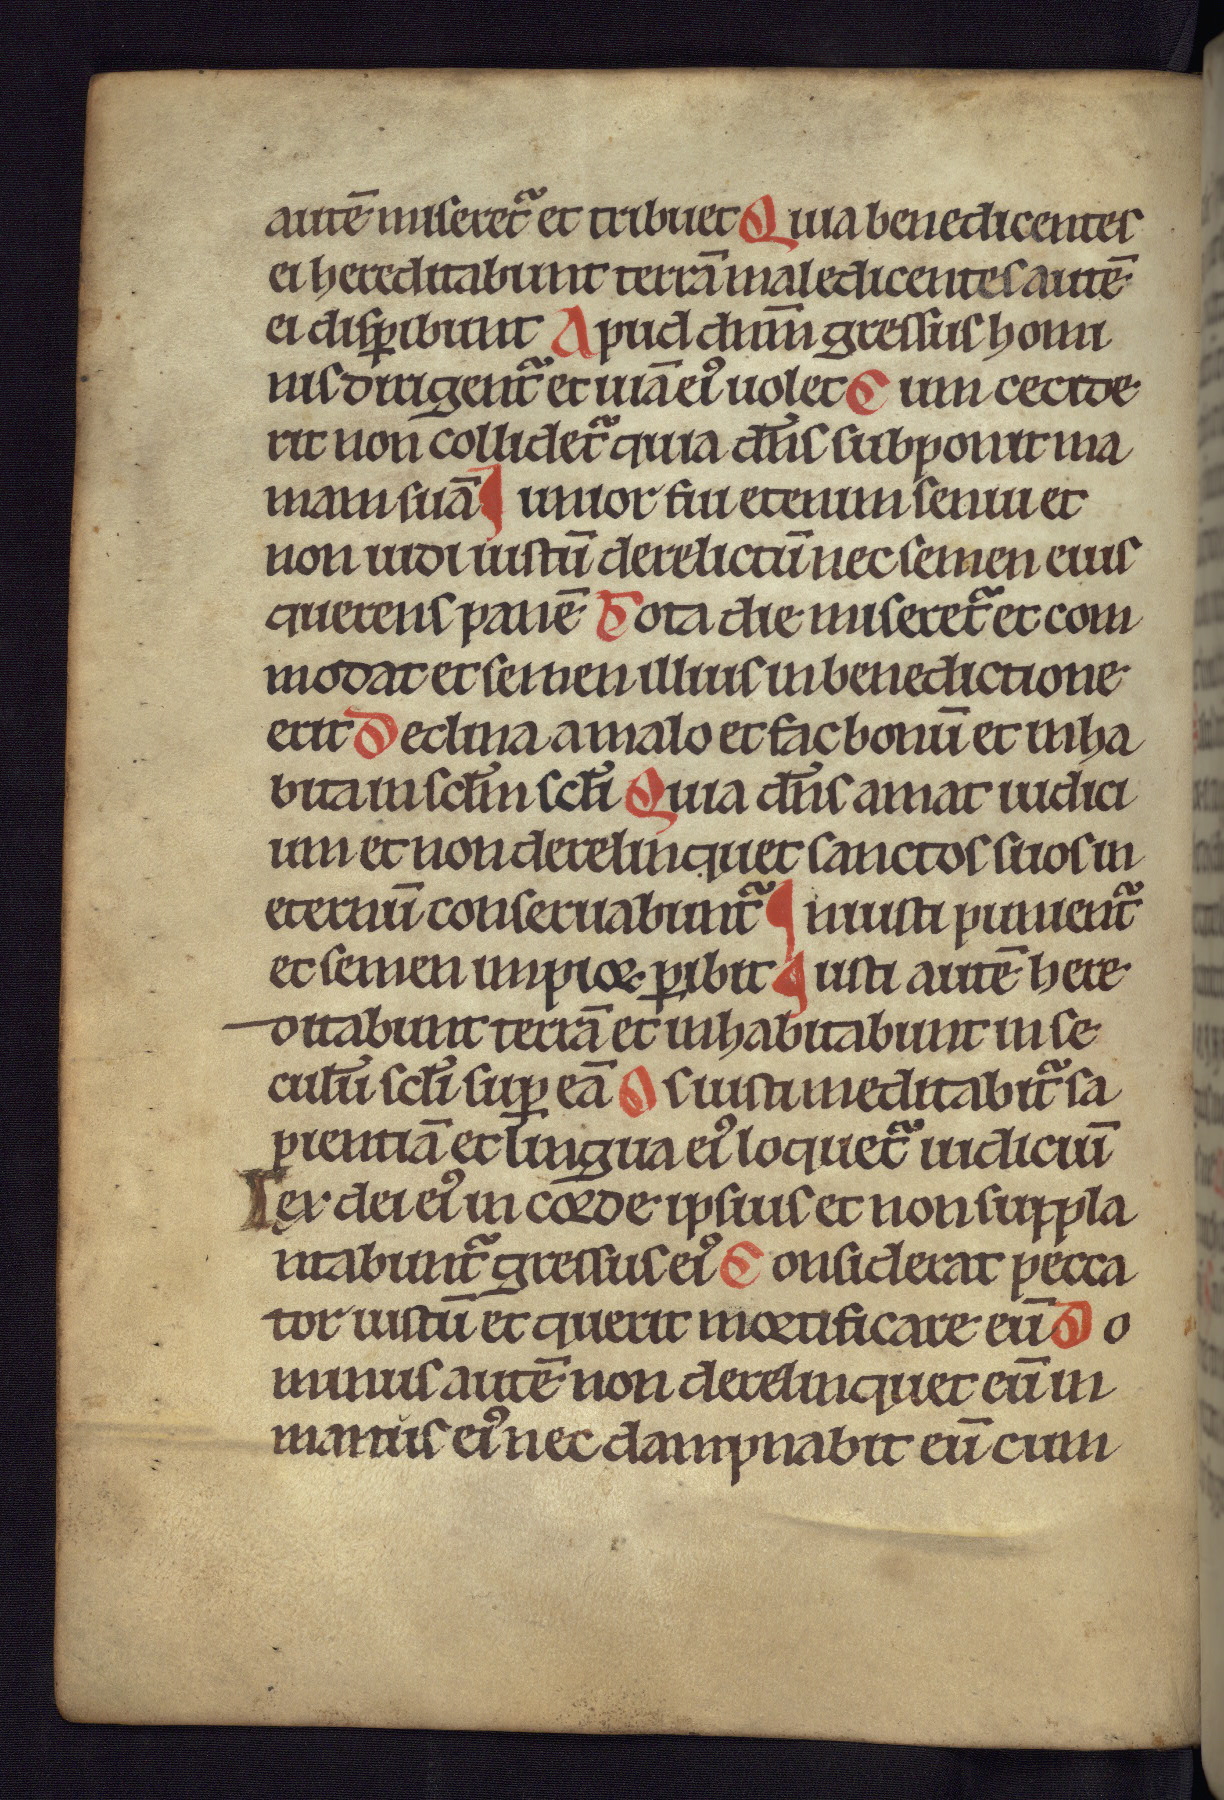 autē miseret᷑ et tribuet Quia benedicentes
ei hereditabunt terrā maledicentes autē
ei disꝑibunt Apud dn̄m gressus homi
nis dirigent᷑ et uiā ei⁹ uolet Cum cecide
rit non collidet᷑ quia dn̄s subponit ma
mam suā Iunior fui etenim senui et
non uidi iustū derelictū nec semen eius
querens panē Tota die miseret᷑ et com
modat et semen illius in benedictione
erit Declina a malo et fac bonū et inha
bita in sclm̄ scłi Quia dn̄s amat iudici
um et non derelinquet sanctos suos in
eternū conseruabunt᷑ Iniusti punient᷑
et semen impioꝝ ꝑibit Iusti autē here
ditabunt terrā et inhabitabunt in se
culū scłi suꝑ eā Os iusti meditabit᷑ sa
pientiā et lingua ei⁹ loquet᷑ iudiciū
Lex dei ei⁹ in corde ipsius et non suppla
ntabunt᷑ gressus ei⁹ Considerat pecca
tor iustū et querit mortificare eū Do
minus autē non derelinquet eū in
manus ei⁹ nec dampnabit eū cum